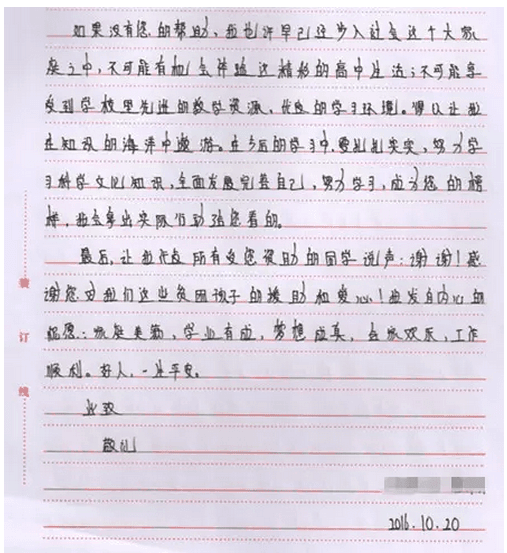 如果没有您的帮助，我也许早已经步入社会这个大家
庭之中，不可能有机会体验这精彩的高中生活；不可能享
受到学校里先进的教学资源，优良的学习环境。得以让我
在知识的海洋中遨游。在今后的学习中，要扎扎实实，努力学
习科学文化知识，全面发展完善自己，努力学习，成为您的榜
样，我会拿出实际行动给您看的。
最后，让我代表所有受您资助的同学说声：谢谢！感
谢您对我们这些贫困孩子的援助和爱心！我发自内心的
祝愿：家庭美勤，学业有成，梦想成真，合家欢乐，工作
顺利。好人，一生平安。
此致
敬礼
2016.10.20
装
订
线